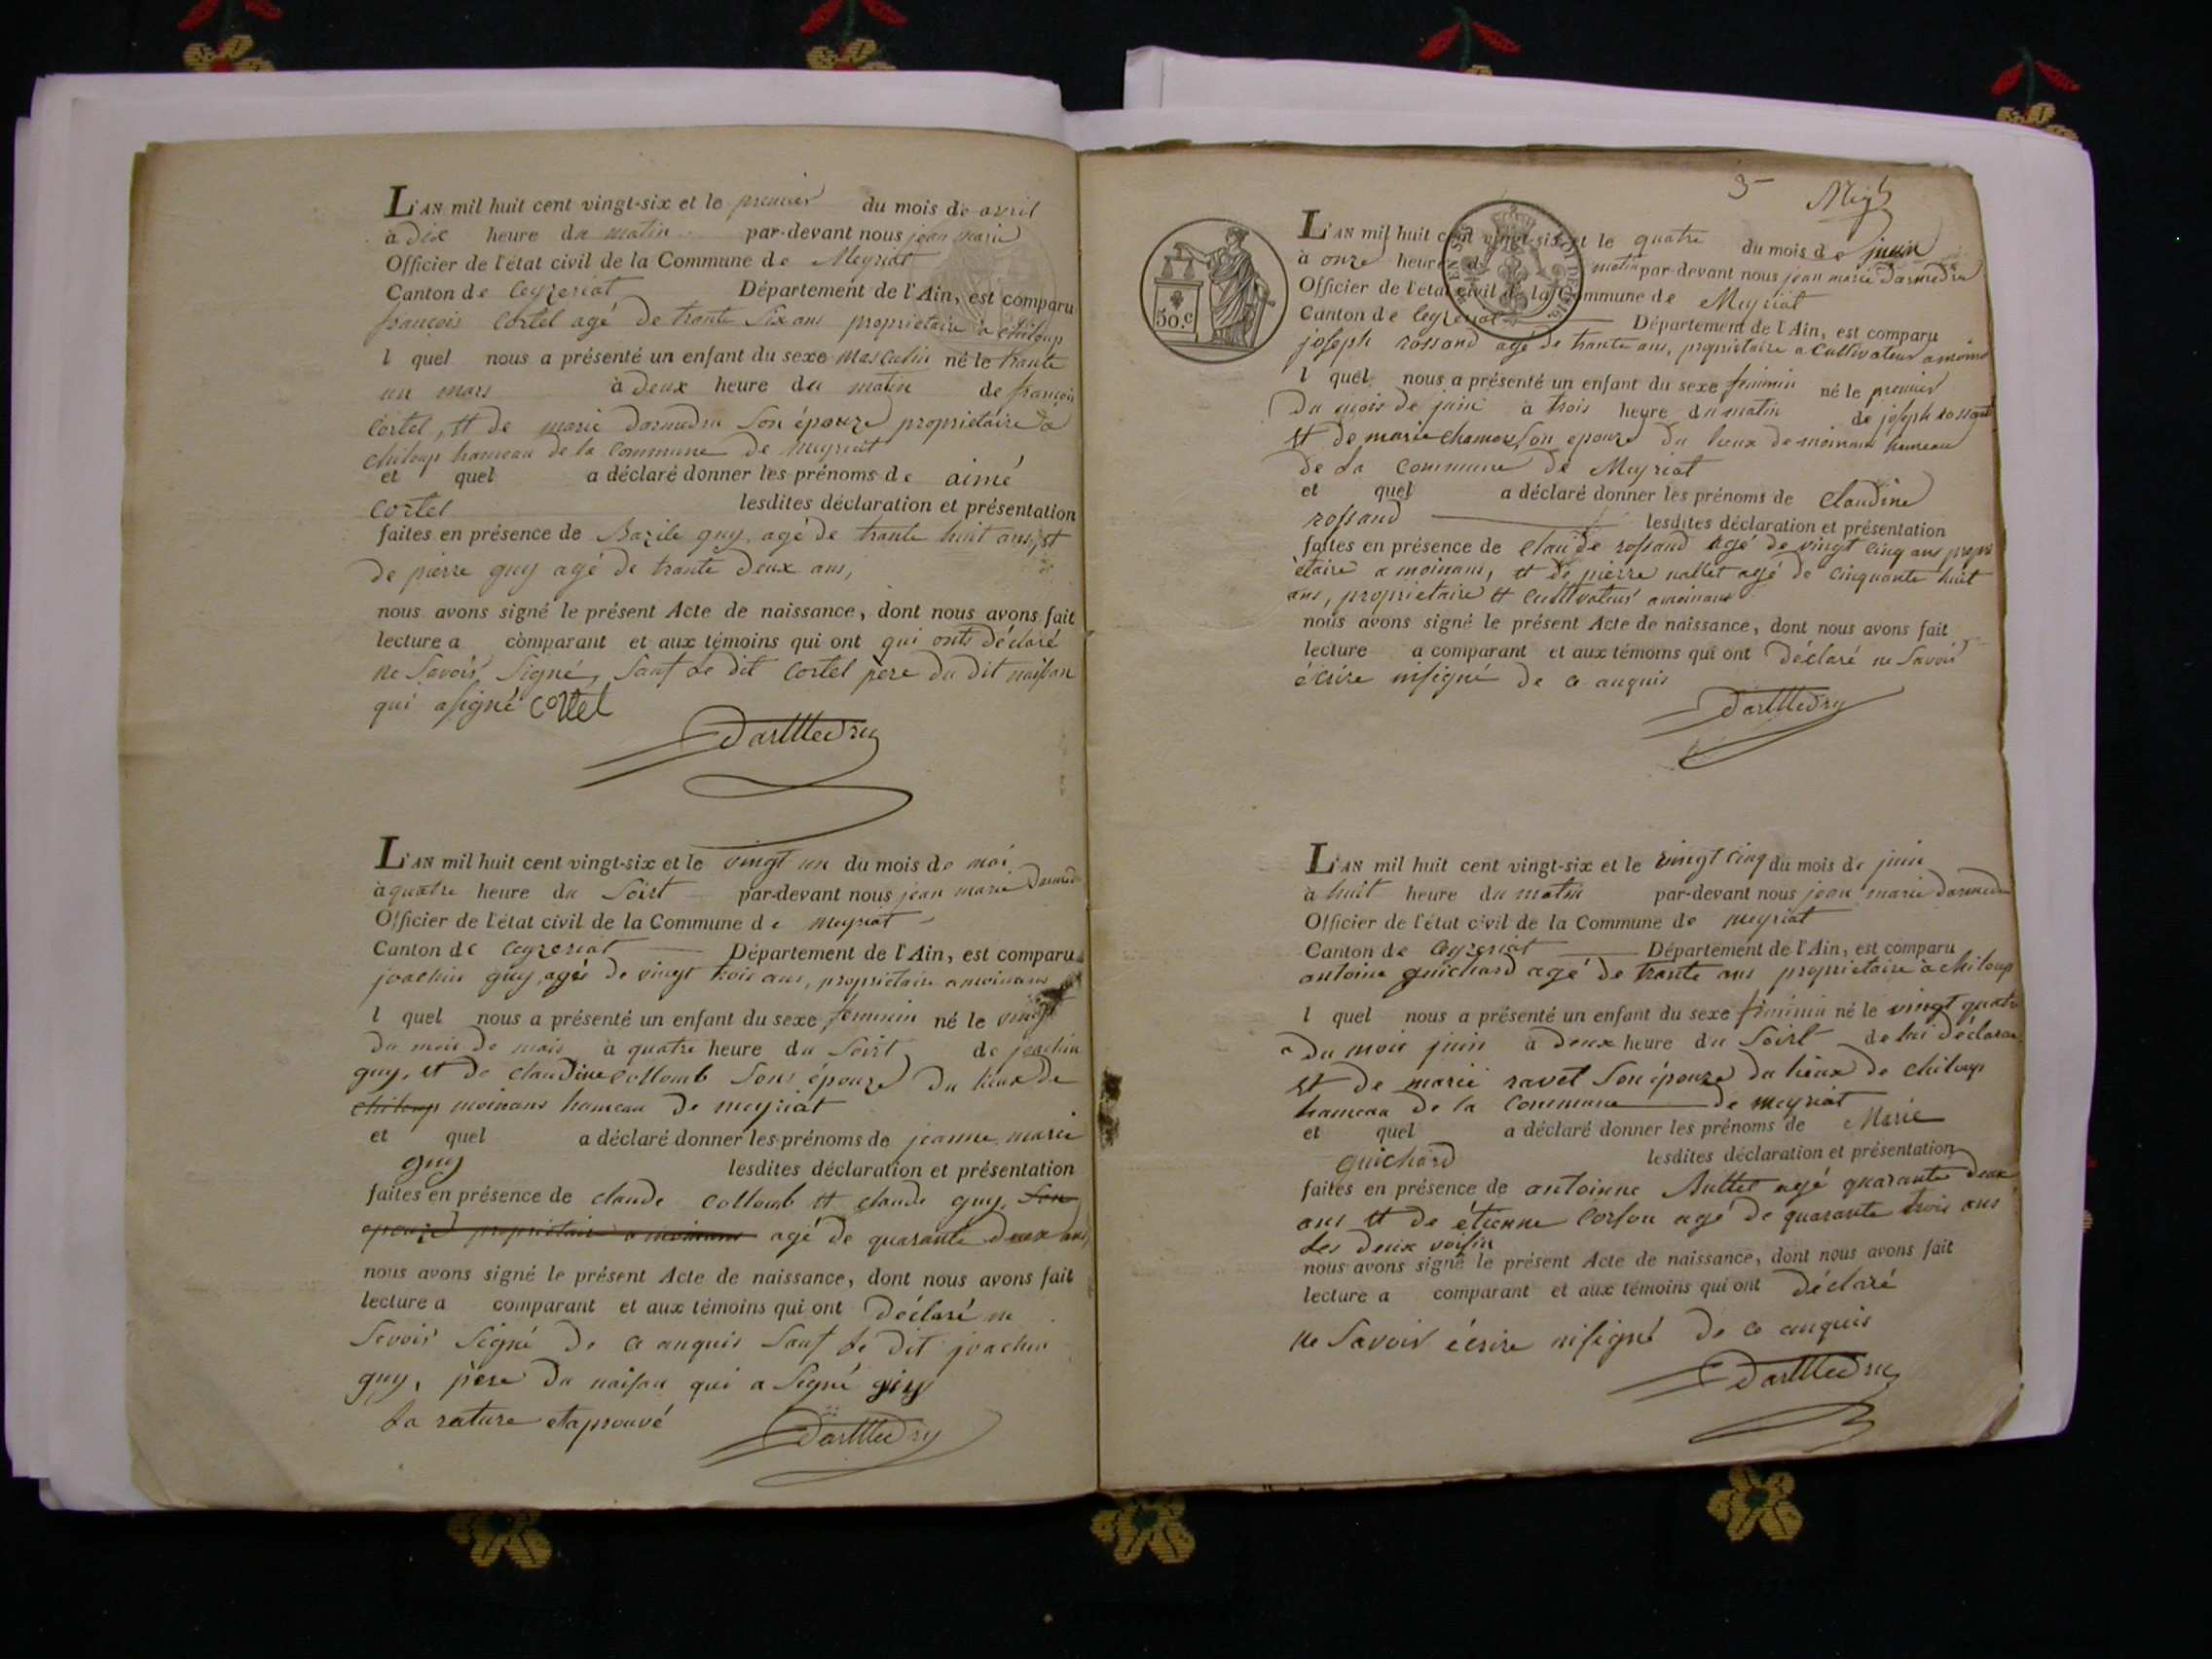 L'AN mil huit cent vingt-six et le premier du mois de avril
à dix heure du matin par-devant nous jean marie
Officier de l'état civil de la Commune de Meyriat
Canton de Ceyzeriat Département de l'Ain, est comparu
françois Cortel agé de trante six ans propriétaire a chiloup
l quel nous a présenté un enfant du sexe masculin né le trante
un mars à deux heure du matin de françois
Cortel, et de marie darmedru son épouze propriétaire a
chiloup hameau de la commune de meyriat
et quel a déclaré donner les prénoms de aimé
Cortel lesdites déclaration et présentation
faites en présence de Bazile guy, agé de trante huit ans, et
de pierre guy agé de trante deux ans,
nous avons signé le présent Acte de naissance, dont nous avons fait
lecture a comparant et aux témoins qui ont qui onts déclaré
ne savoir signé, sauf le dit Cortel père du dit
qui a signé Cortel
Darmedru
L'AN mil huit cent vingt-six et le vingt un du mois de mai
à quatre heure du soirt par-devant nous jean marie
Officier de l'état civil de la Commune de meyriat
Canton de Ceyzeriat Département de l'Ain, est comparu
joachin guy, agé de vingt trois ans, propriétaire a moinans
l quel nous a présenté un enfant du sexe feminin né le vingt
du mois de mais à quatre heure du soirt de joachin
guy, et de claudine Collomb sons épouze du lieux de
chiloup moinans hameau de meyriat
et quel a déclaré donner les prénoms de jeanne marie
guy lesdites déclaration et présentation
faites en présence de claude Collomb et claude guy, son
epouze propriétaire a moinans agé de quarante deux ans,
nous avons signé le présent Acte de naissance, dont nous avons fait
lecture a comparant et aux témoins qui ont déclaré ne
sevoir signé de ce anquis sauf le dit joachin
guy, père du qui a signé guy
la rature etaprouvé
Darmedru
5
L'AN mil huit cent vingt-six et le quatre du mois de juin
à onze heure du matin par-devant nous jean marie Darmedru
Officier de l'état civil de la Commune de Meyriat
50.c
Canton de Ceyzeriat Département de l'Ain, est comparu
joseph rossand agé de trante ans, propriétaire a cultivateur a moinans
l quel nous a présenté un enfant du sexe feminin né le premier
du mois de juin à trois heure du matin de joseph rossand
et de marie chamou, son epouze du lieux de moinans hameau
de la commune de Meyriat
et quel a déclaré donner les prénoms de claudine
rossand lesdites déclaration et présentation
faites en présence de claude rossand agé de vingt cinq ans propri
étaire a moinans, et de pierre nallet agé de cinquante huit
ans, propriétaire et cultivateur amoinans
nous avons signé le présent Acte de naissance, dont nous avons fait
lecture a comparant et aux témoins qui ont déclaré ne savoir
écrire nisigné de ce anquis
Darmedru
L'AN mil huit cent vingt-six et le vingt cinq du mois de juin
à huit heure du matin par-devant nous jean marie darmedru
Officier de l'état civil de la Commune de meyriat
Canton de Ceyzeriat Département de l'Ain, est comparu
antoine guichard agé de trante ans propriétaire à chiloup
l quel nous a présenté un enfant du sexe féminin né le vingt quatre
du mois juin à deux heure du soirt de lui déclarant
et de marie ravet son épouze du lieux de chiloup
hameau de la commune de meyriat
et quel a déclaré donner les prénoms de Marie
guichard lesdites déclaration et présentation
faites en présence de antoinne agé quarante deux
ans et de étienne agé de quarante trois ans
les deux voisin
nous avons signé le présent Acte de naissance, dont nous avons fait
lecture a comparant et aux témoins qui ont déclaré
ne savoir écrire nisigné de ce anquis
Darmedru